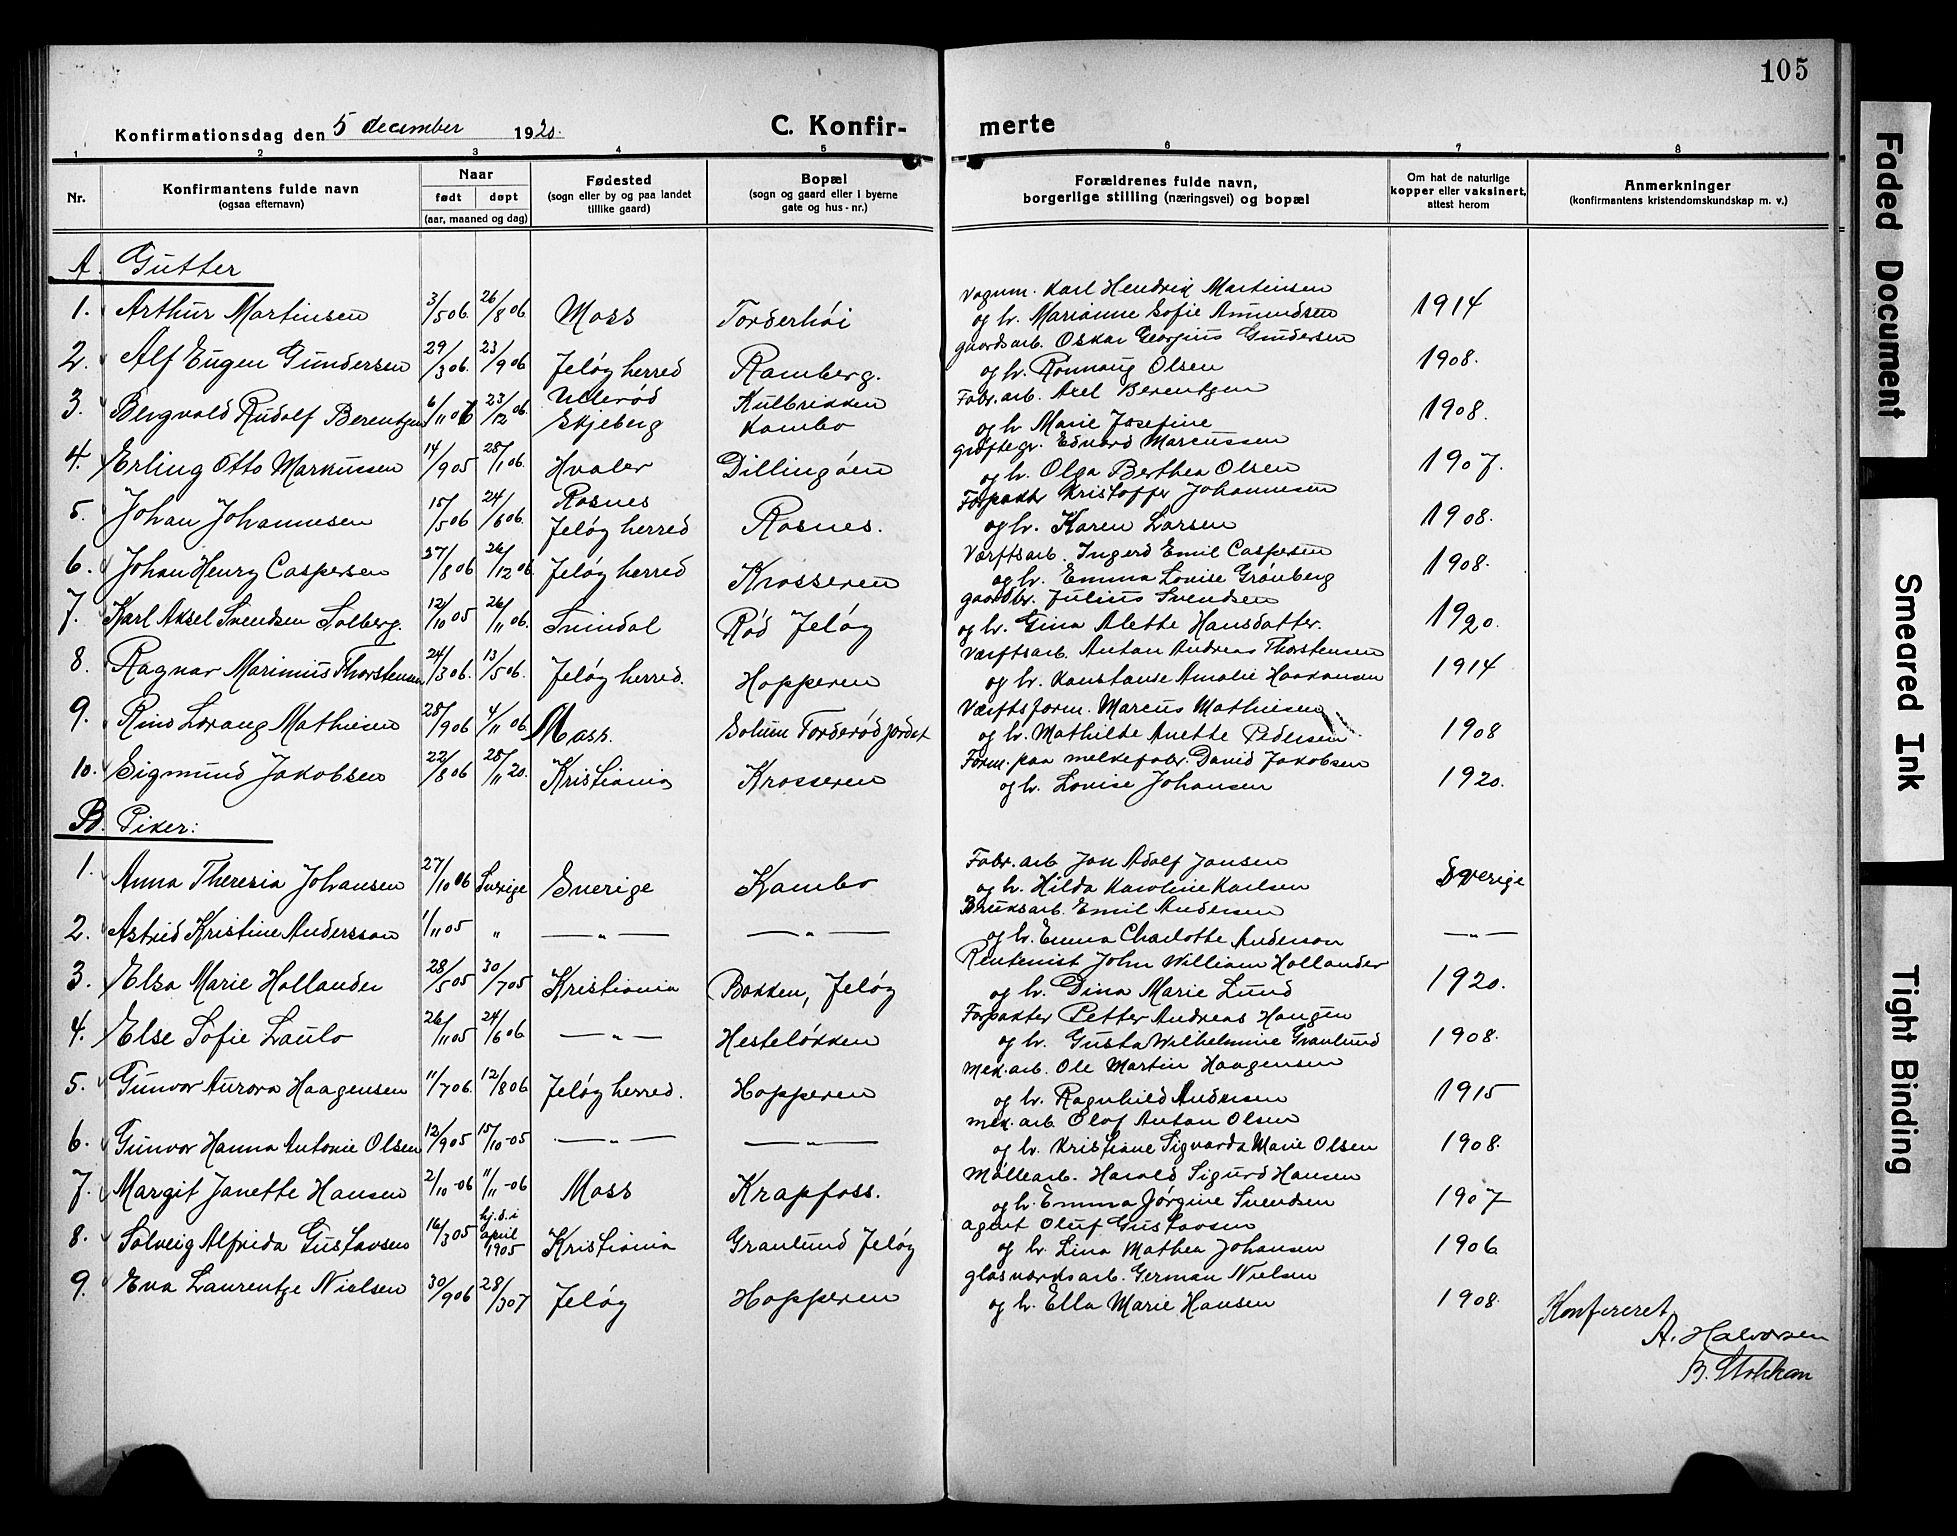 105
Konfirmationsdag den 5 december 1920.
C. Konfir-
merte
1 2 3 4 5 6 7 8
Nr.
Konfirmantens fulde navn
(ogsaa efternavn)
Naar
født døpt
(aar, maaned og dag)
Fødested
(sogn eller by og paa landet
tillike gaard)
Bopæl
(sogn og gaard eller i byerne
gate og hus-nr.)
Forældrenes fulde navn,
borgerlige stilling (næringsvei) og bopæl
Om hat de naturlige
kopper eller vaksinert,
attest herom
Anmerkninger
(konfirmantens kristendomskundskap m. v.)
A. Gutter
1. Arthur Martinsen 3/5 06. 26/8 06 Moss Torderhøi
Vognm. Karl Hendrik Martinsen
og h. Marianne Sofie Amundsen 1914
2. Alf Eugen Gundersen 29/3 06. 23/9 06 Jeløy herred Ramberg.
gaardsarb. Oskar Georgius Gundersen
og h. Ronnaug Olsen 1908.
3. Bergvald Rudolf Berentzen 6/11 06 23/12 06. Ullerød Skjeberg Kulbrikken Kambo
Fabr. arb. Axel Berentzen
og h Marie Josefine 1908.
4. Erling Otto Markussen 14/9 05 28/1 06. Hvaler Dillingøen
grøftegr. Edvard Marcussen
og h. Olga Berthea Olsen 1907.
5. Johan Johannesen 15/5 06 24/6 06. Rosnes Jeløy herred Rosnes.
Forpakter Kristoffer Johannesen
og h. Karen Larsen 1908.
6. Johan Henry Caspersen 27/8 06 26/12 06. Jeløy herred Krosseren
Værftsarb. Ingerd Emil Caspersen
og h. Emma Lovise Grønberg 1908.
7. Karl Aksel Svendsen Solberg. 12/10 05 26/11 06. Svindal Rød Jeløy
gaardbr. Julius Svendsen
og h. Gina Alette Hansdatter. 1920.
8. Ragnar Marinius Thorstensen 24/3 06. 13/5 06. Jeløy herred. Hopperen
Værftsarb. Anton Andreas Thorstensen
og h. Konstanse Amalie Haakonsen 1914
9. Rino Lorang Mathiesen 28/9 06 4/11 06. Moss. Solum Torderødjordet
Værftsform. Marcus Mathiesen
og h. Mathilde Anette Pedersen 1908
10. Sigmund Jakobsen 22/8 06 28/11 20. Kristiania Krosseren
Form. paa melkefabr. David Jakobsen
og h. Lovise Johansen 1920.
B. Piker:
1. Anna Theresia Johansen 27/10 06 Sverige Sverige Kambo
Fabr. arb Jon Adolf Jansen
og h. Hilda Karoline Karlsen Sverige
2. Astrid Kristine Andersson 1/11 05 " —"— —"—
Bruksarb. Emil Andersen
og h. Emma Charlotte Anderson —"—
3. Elsa Marie Hollander 28/5 05 30/7 05 Kristiania Bakken, Jeløy
Rentenist John William Hollander
og h. Dina Marie Lund 1920.
4. Else Sofie Laulo 26/11 05 24/6 06 —"— Hesteløkken
Forpakter Petter Andreas Haugen
og h. Gusta Wilhelmine Granlund 1908.
5. Gunvor Aurora Haagensen 11/7 06. 12/8 06 Jeløy herred. Hopperen
Mek. arb. Ole Martin Haagensen
og h. Ragnhild Andersen 1915
6. Gunvor Hanna Antonie Olsen 12/9 05 15/10-05 —"— —"—
mek. arb Olof Anton Olsen
og h. Kristiane Sigvarda Marie Olsen 1908.
7. Margit Janette Hansen 2/10-06 11/11-06 Moss Krapfoss.
Møllearb. Harald Sigurd Hansen
og h. Emma Jørgine Svendsen 1907
8. Solveig Alfrida Gustavsen 16/3 05 hj.d. i april 1905 Kristiania Granlund Jeløy
agent Oluf Gustavsen
og h. Lina Mathea Johansen 1906
9. Eva Laurentze Nielsen 30/9 06 28/3 07 Jeløy Hopperen
glasværksarb. German Nielsen
og h. Ella Marie Hansen 1908.
Konfereret
A. Halvorsen
B. Stokkan
Faded Document
Smeared Ink
Tight Binding